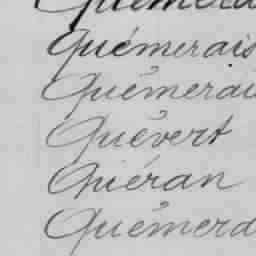 Quémera
Quémerais
Quémerai
Quévert
Quéran
Quémerd